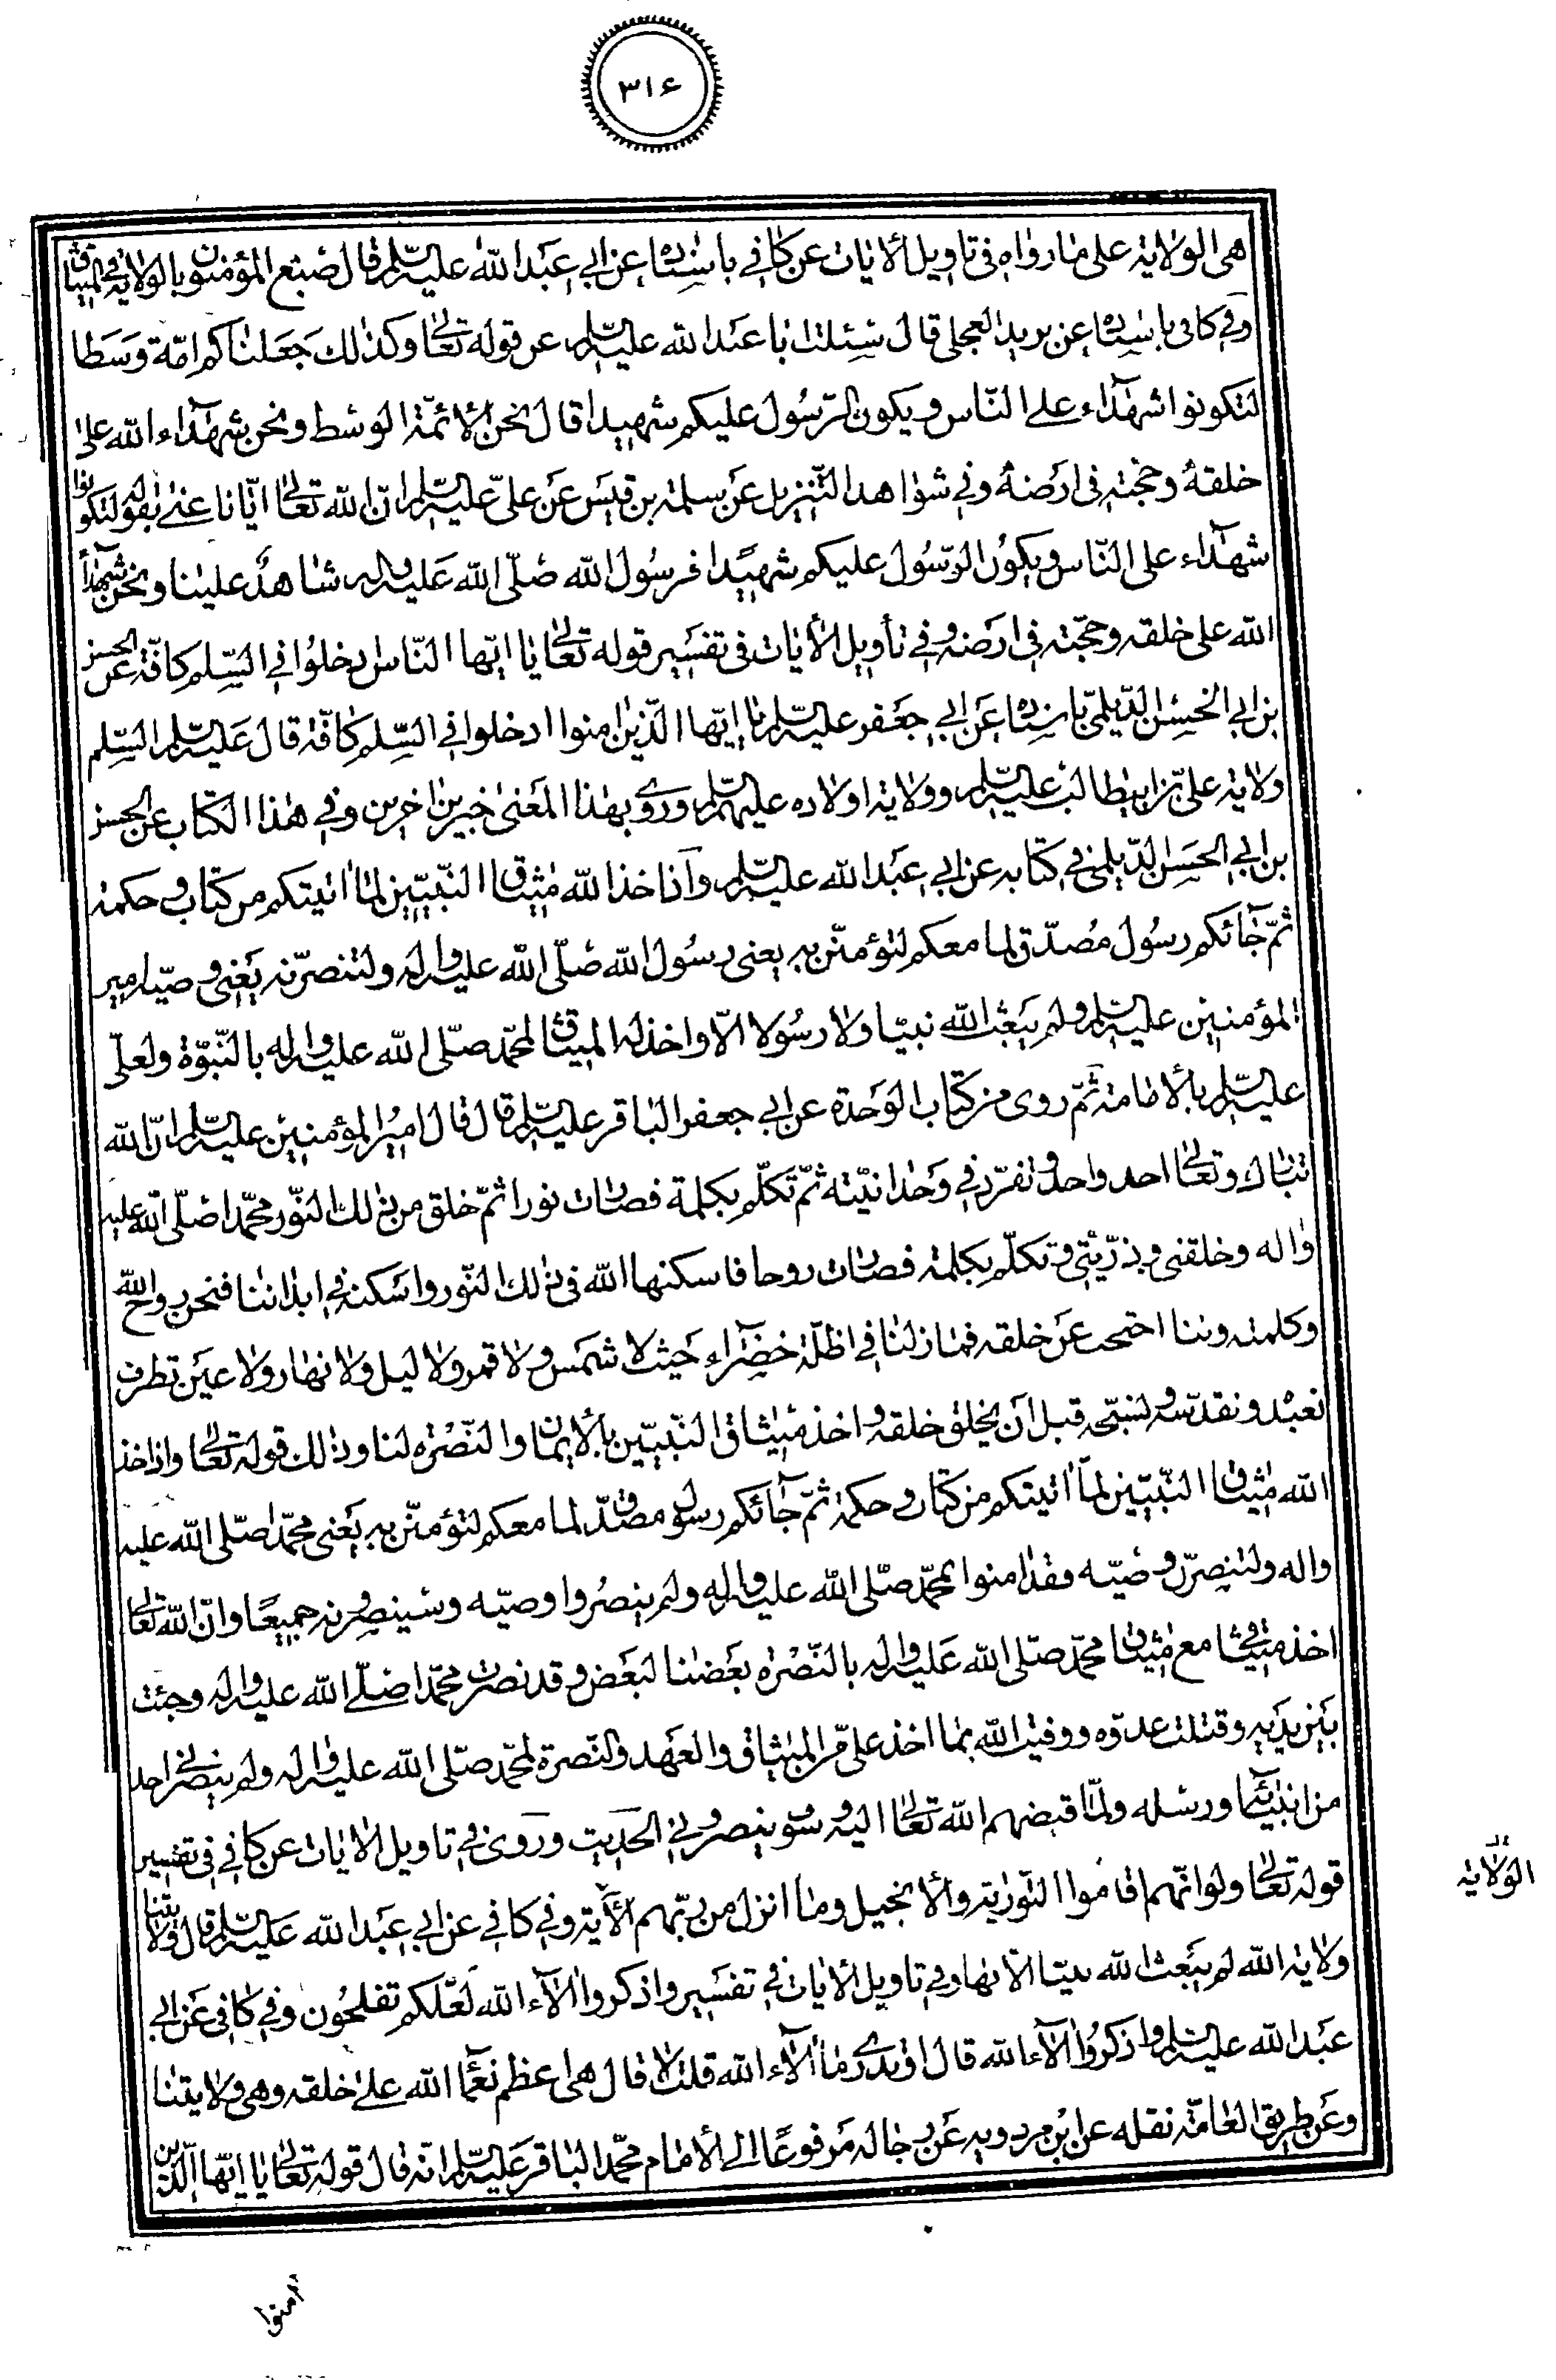 ٣١٤
هى الولاية على مارواه فى تاويل الايات عن كافى باسناده عن ابى عبد الله عليه السلام قال صبغ المؤمنون بالولاية فى الميثاق
وفى كافى باسناده عن بريد العجلى قال سئلت ابا عبد الله عليه السلام عن قوله تعالى وكذلك جعلناكم امّة وسطا
لتكونوا شهداء على النّاس ويكون الرّسول عليكم شهيدا قال نحن الأئمّة الوسط ونحن شهداء الله على
خلقه وحجّته فى ارضه وفى شواهد التّنزيل عن سلمة بن قيس عن علىّ عليه السلام انّ الله تعالى ايّانا عنى بقوله لتكونوا
شهداء على النّاس ويكون الرّسول عليكم شهيدا فرسول الله صلّى الله عليه واله شاهدٌ علينا ونحن شهداء
الله على خلقه وحجّته فى ارضه وفى تأويل الأيات فى تفسير قوله تعالى يا ايّها النّاس ادخلوا فى السّلم كافّة عن الحسن
بن ابى الحسن الدّيلمىّ باسناده عن ابى جعفر عليه السلام يا ايّها الّذين امنوا ادخلوا فى السّلم كافّة قال عليه السلام السّلم
ولاية علىّ بن ابيطالب عليه السلام وولاية اولاده عليهم السلام وروى بهذا المعنى خبرين اخرين وفى هذا الكتاب عن الحسن
بن ابى الحسن الدّيلمى فى كتابه عن ابى عبد الله عليه السلام واذا خذ الله ميثاق النّبيّين لما اتيتكم من كتاب وحكمة
ثمّ جائكم رسول مصدّق لما معكم لتؤمننّ به يعنى رسول الله صلّى الله عليه واله ولتنصرنّه يعنى وصيّه امير
المؤمنين عليه السلام ولم يبعث الله نبيّا ولا رسولا الّا واخذ له الميثاق لمحمّد صلّى الله عليه واله بالنّبوّة ولعلىّ
عليه السلام بالأمامة ثمّ روى من كتاب الوحدة عن ابى جعفر الباقر عليه السلام قال قال امير المؤمنين عليه السلام انّ الله
تبارك وتعالى احد واحد وتفرّد فى وحدانيّته ثمّ تكلّم بكلمة فصارت نورا ثمّ خلق من ذلك النّور محمّدا صلّى الله عليه
واله وخلقنى وذرّيّتى وتكلّم بكلمة فصارت روحا فاسكنها الله فى ذلك النّور واسكنه فى ابداننا فنحن روح الله
وكلمته وبنا احتجب عن خلقه فمازلنا فى اظلّة خضراء حيث لا شمس ولا قمر ولا ليل ولا نهار ولا عين تطرف
نعبده ونقدّسه ونسبّحه قبل ان يخلق خلقه واخذ ميثاق النّبيّين بالأيمان والنّصرة لنا وذلك قوله تعالى واذاخذ
الله ميثاق النّبيّين لما اتيتكم من كتاب وحكمة ثمّ جائكم رسول مصدّق لما معكم لتؤمننّ به يعنى محمّدا صلّى الله عليه
واله ولتنصرنّ وصيّه فقد امنوا بمحمّد صلّى الله عليه واله ولم ينصروا وصيّه وسينصرونه جميعًا وانّ الله تعالى
اخذ ميثاقى مع ميثاق محمّد صلّى الله عليه واله بالنّصرة بعضنا لبعض وقد نصرت محمّدا صلّى الله عليه واله وجئت
بين يديه وقتلت عدوّه ووفيت الله بما اخذ علىّ من الميثاق والعهد والنّصرة لمحمّد صلّى الله عليه واله ولم ينصرنى احد
من انبيائه ورسله ولمّا قبضهم الله تعالى اليه وسوف ينصرونى الحديث وروى فى تاويل الايات عن كافى فى تفسير
قوله تعالى ولو انّهم اقاموا التّورية والأنجيل وما انزل من ربّهم الأية وفى كافى عن ابى عبد الله عليه السلام قال ولايتنا
ولاية الله لم يبعث الله نبيّا الّا بها وفى تاويل الأيات فى تفسير واذكروا الآء الله لعلّكم تفلحون وفى كافى عن ابى
عبد الله عليه السلام واذكروا الآء الله قال اوتدرى ما الآء الله قلت لا قال هى اعظم نعماء الله على خلقه وهى ولايتنا
وعن طريق العامّة نقله عن ابن مردويه عن رجاله مرفوعًا الى الأمام محمّد الباقر عليه السلام انّه قال قوله تعالى يا ايّها الّذين
الولاية
امنوا